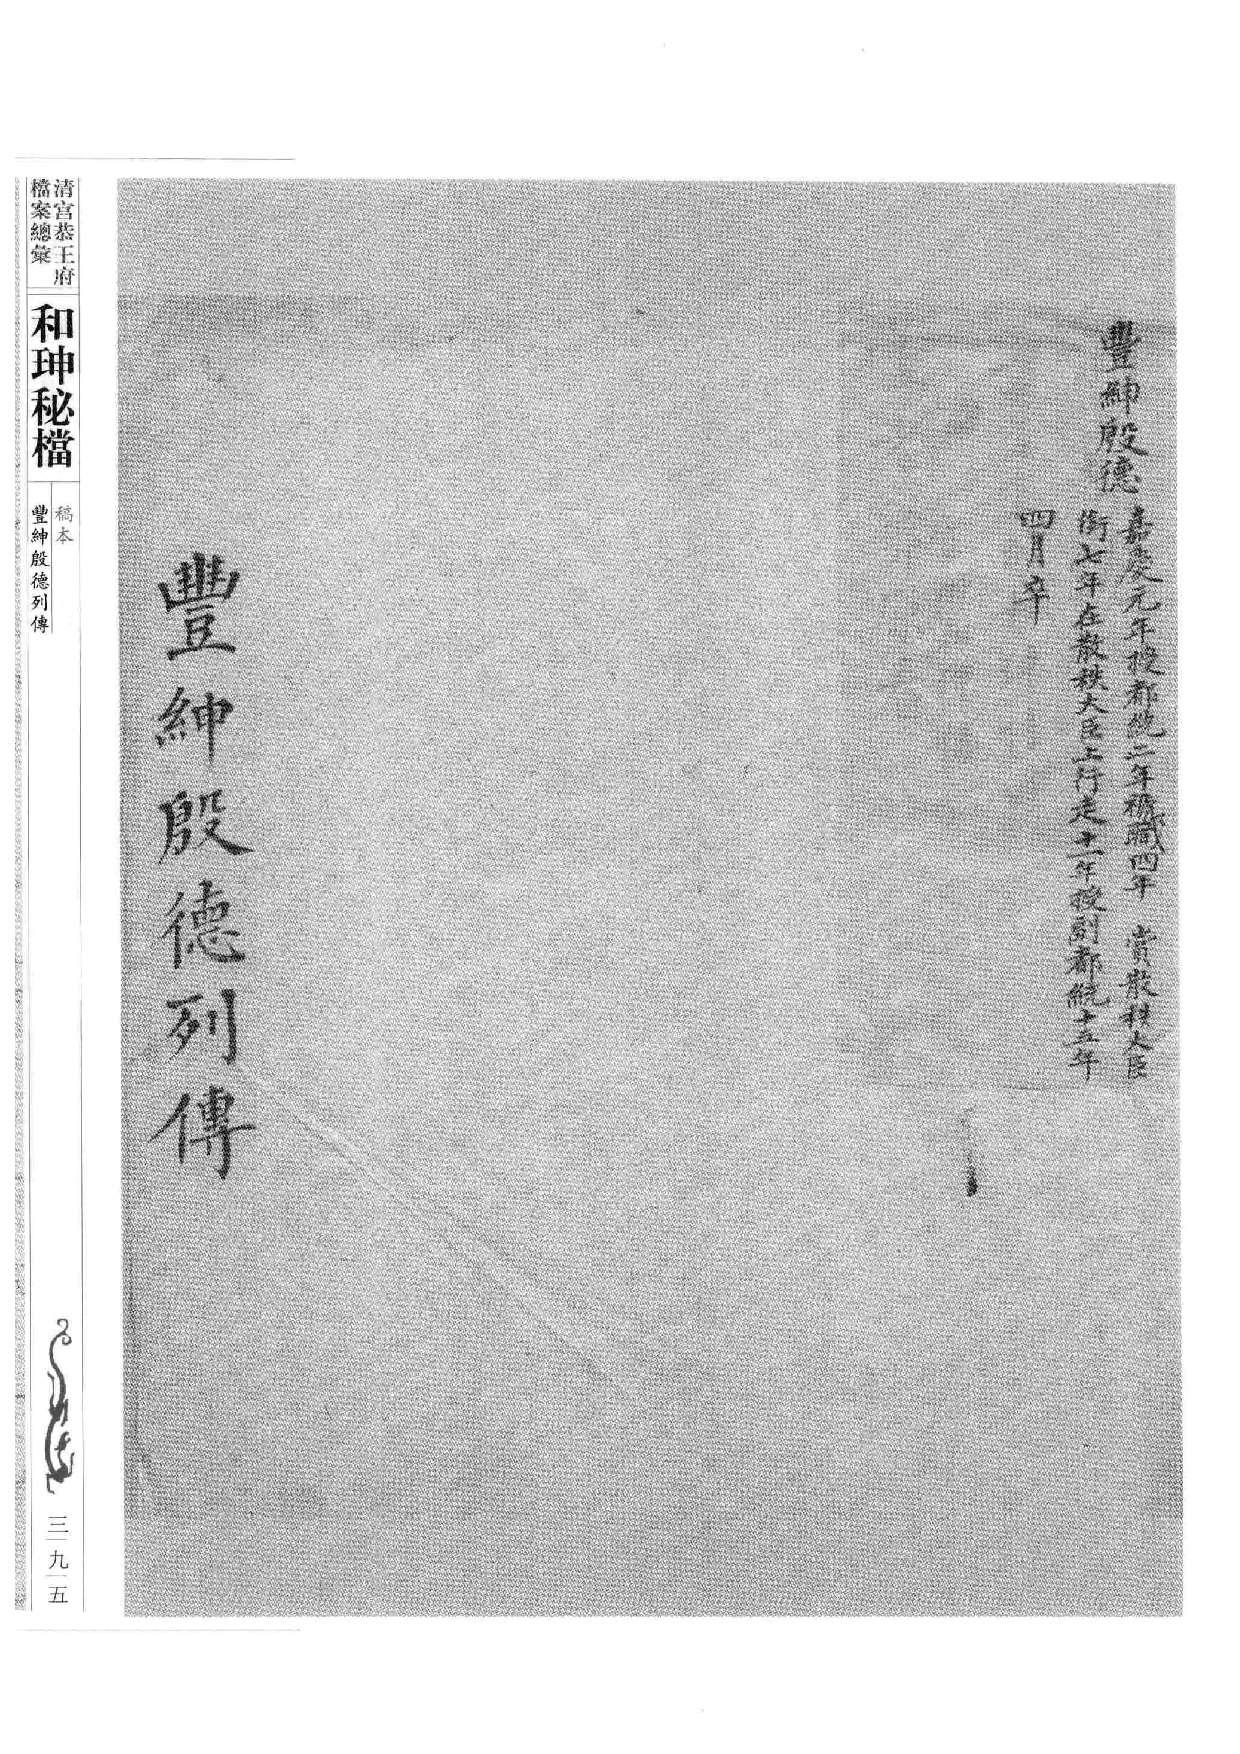 豐紳殷德
嘉慶元年授都統二年褫職四年　賞散秩大臣
銜七年在散秩大臣上行走十一年授副都統十五年
四月卒
豐紳殷德列傳
清宮恭王府
檔案總彙
和珅秘檔
稿本
豐紳殷德列傳
三九五